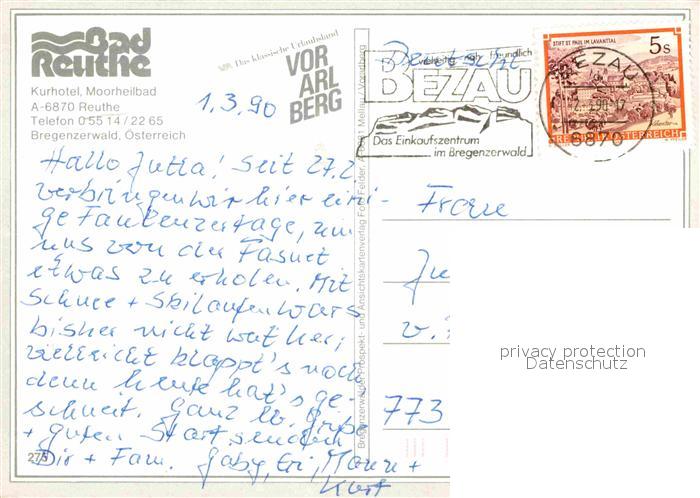 Bad
Reuthe
Kurhotel, Moorheilbad
A-6870 Reuthe
Telefon 0 55 14 / 22 65
Bregenzerwald, Österreich
Das klassische Urlaubsland
VOR
ARL
BERG
1.3.90
Hallo Jutta! Seit 27.2
verbringen wir hier eini-
ge Faulenzertage, um
uns von der Fasnet
etwas zu erholen. Mit
Schnee + Skilaufen wars
bisher nicht weit her,
vielleicht klappt's noch
denn heute hat's ge-
schneit. Ganz lb. Grüße
+ guten Start senden
Dir + Fam. Gaby, Eri, Mann +
Kurt
275
Bregenzerwälder Prospekt- und Ansichtskartenverlag Foto Felder, Mellau / Vorarlberg
freundlich
BEZAU
Das Einkaufszentrum
im Bregenzerwald
STIFT ST. PAUL IM LAVANTTAL
5 S
REPUBLIK ÖSTERREICH
BEZAU
6870
Frau
Ju
v.
773
privacy protection
Datenschutz